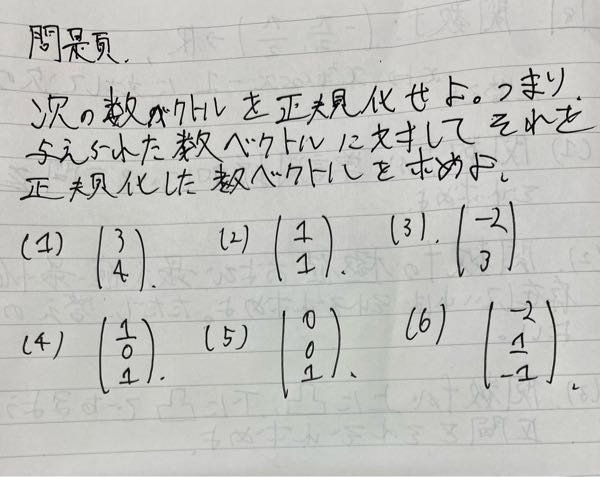 問題.
次の数ベクトルを正規化せよ。つまり,
与えられた数ベクトルに対してそれを
正規化した数ベクトルを求めよ.
(1) (3 4). (2) (1 1). (3). (-2 3)
(4) (1 0 1). (5) (0 0 1). (6) (-2 1 -1).